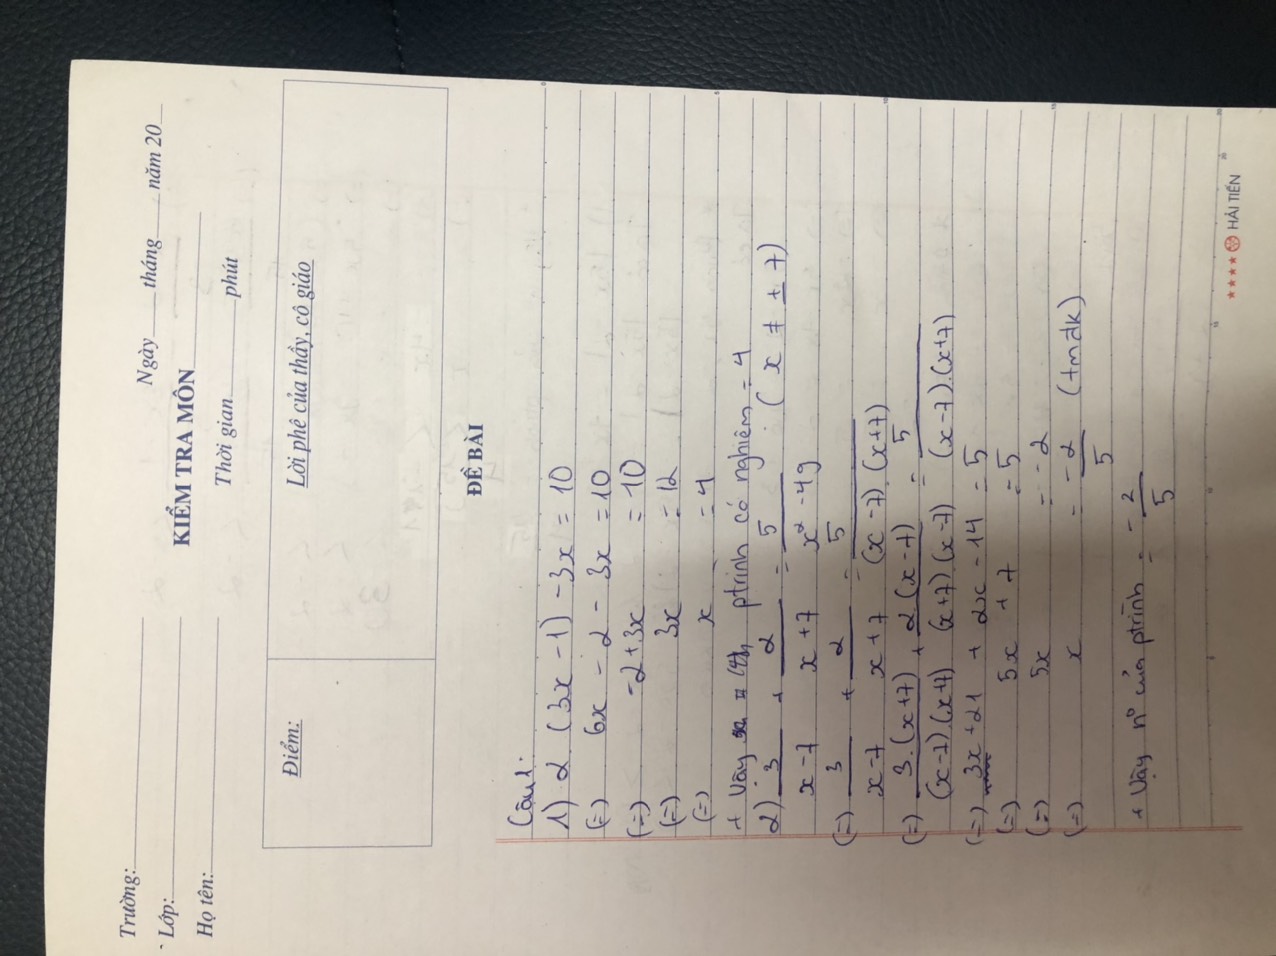 Trường:
Lớp:
Họ tên:
Ngày tháng năm 20
KIỂM TRA MÔN
Thời gian phút
Điểm:
Lời phê của thầy, cô giáo
ĐỀ BÀI
Câu 1:
1) 2 (3x - 1) - 3x = 10
(=) 6x - 2 - 3x = 10
(=) -2 + 3x = 10
(=) 3x = 12
(=) x = 4
+ Vậy ptrình có nghiệm = 4
2) 3/(x-7) + 2/(x+7) = 5/(x²-49) (x ≠ ± 7)
(=) 3/(x-7) + 2/(x+7) = 5/((x-7).(x+7))
(=) 3.(x+7)/((x-7)(x+7)) + 2(x-7)/((x+7)(x-7)) = 5/((x-7).(x+7))
(=) 3x + 21 + 2x - 14 = 5
(=) 5x + 7 = 5
(=) 5x = -2
(=) x = -2/5 (tmđk)
+ Vậy n° của ptrình = -2/5
HẢI TIẾN